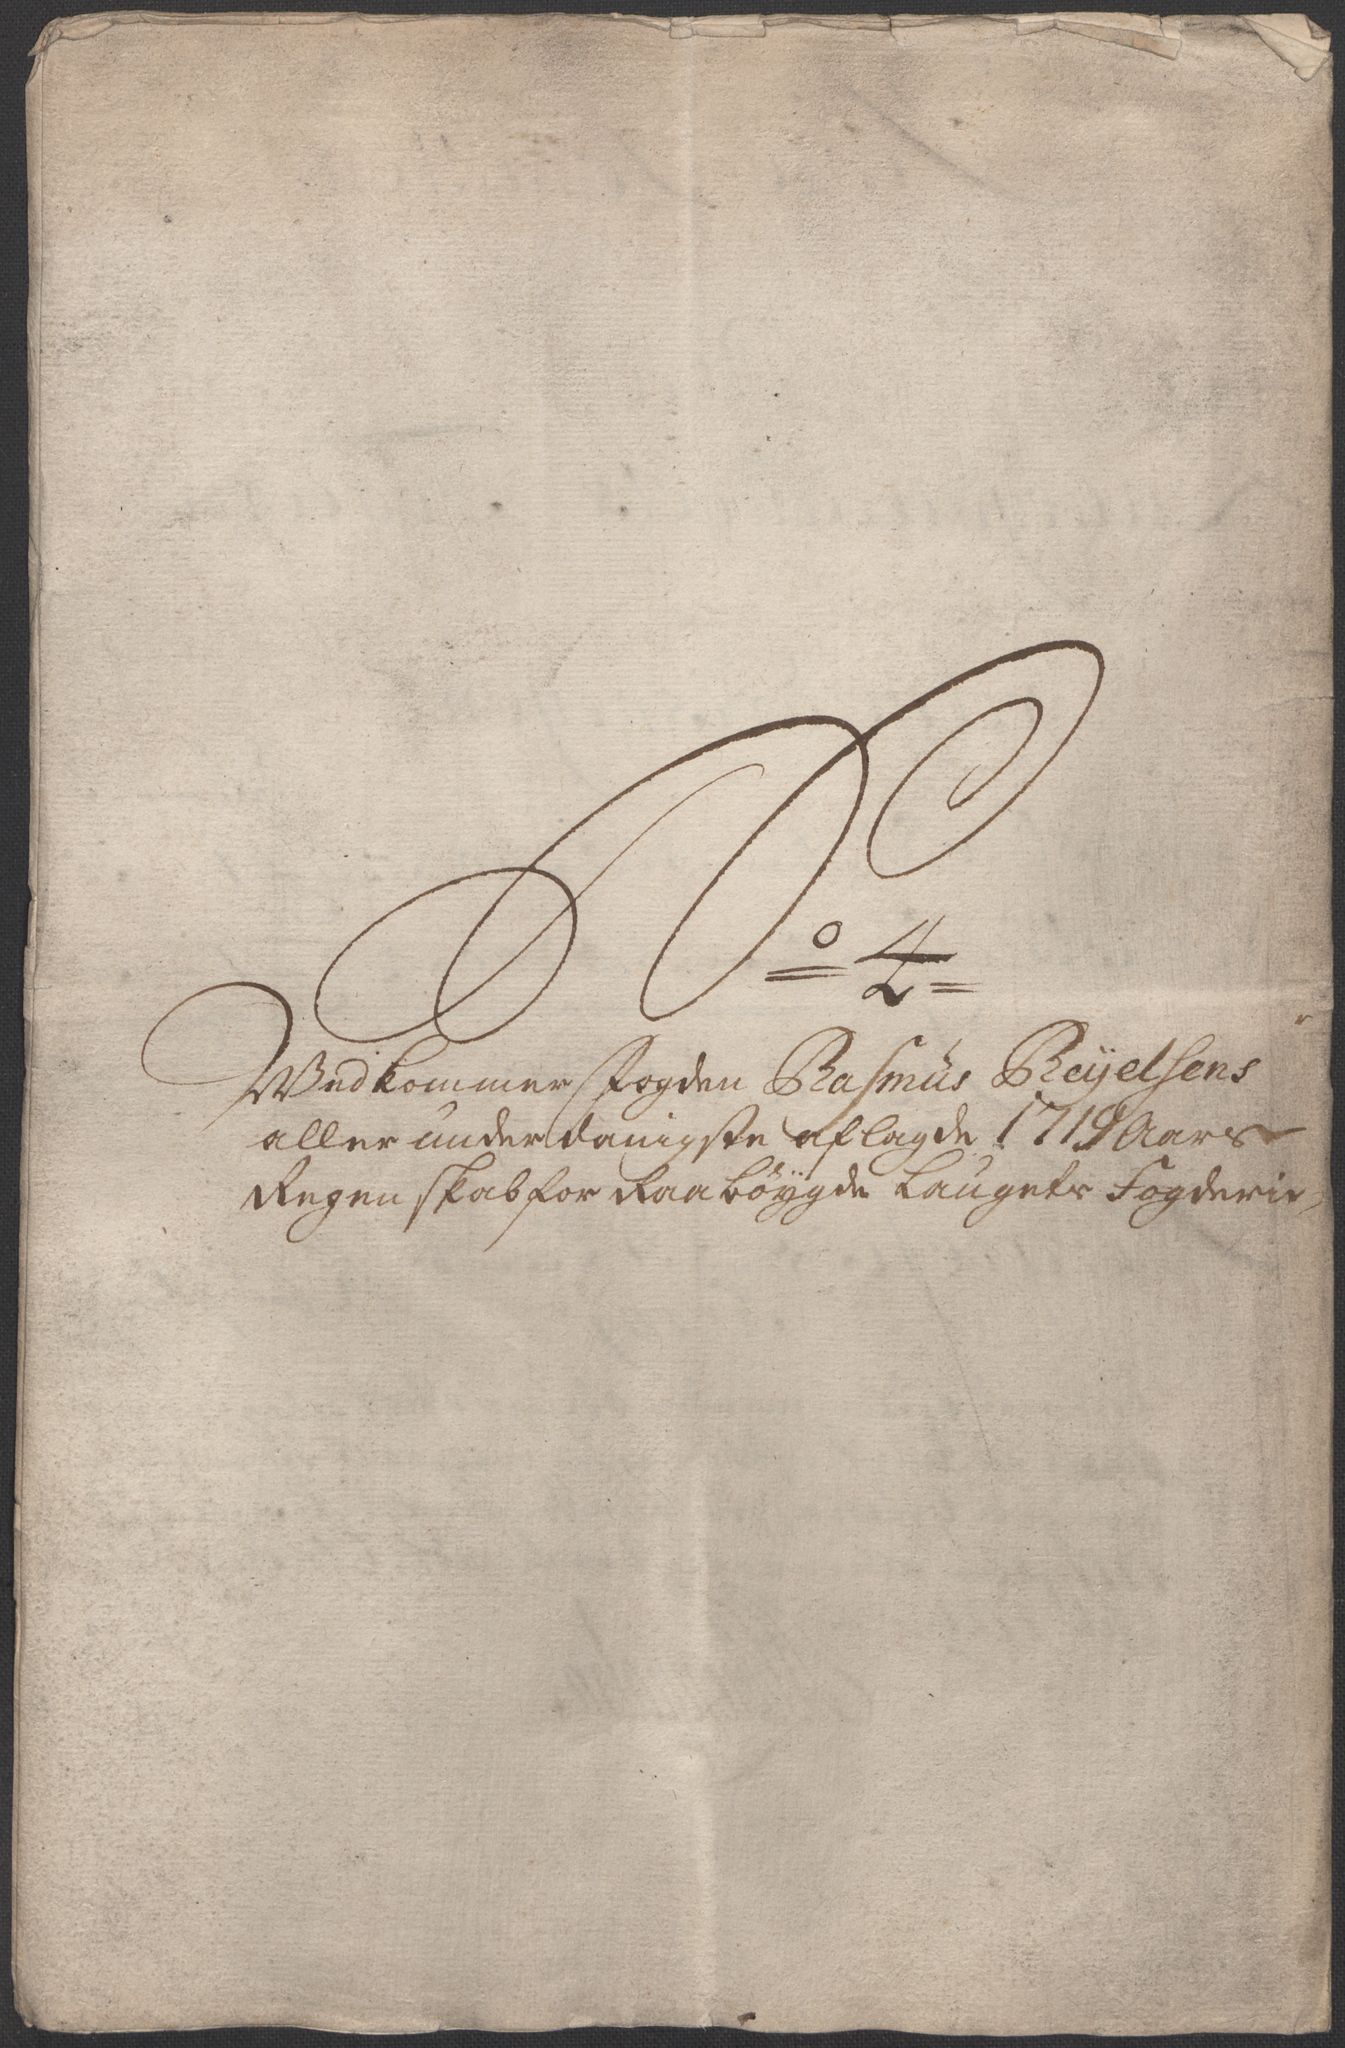 No 4
Vedkommer fogden Rasmus Reÿelsens
allerunderdanigste aflagde 1719 Aars
Regenskab for Raabøÿgde Laugets Fogderie,